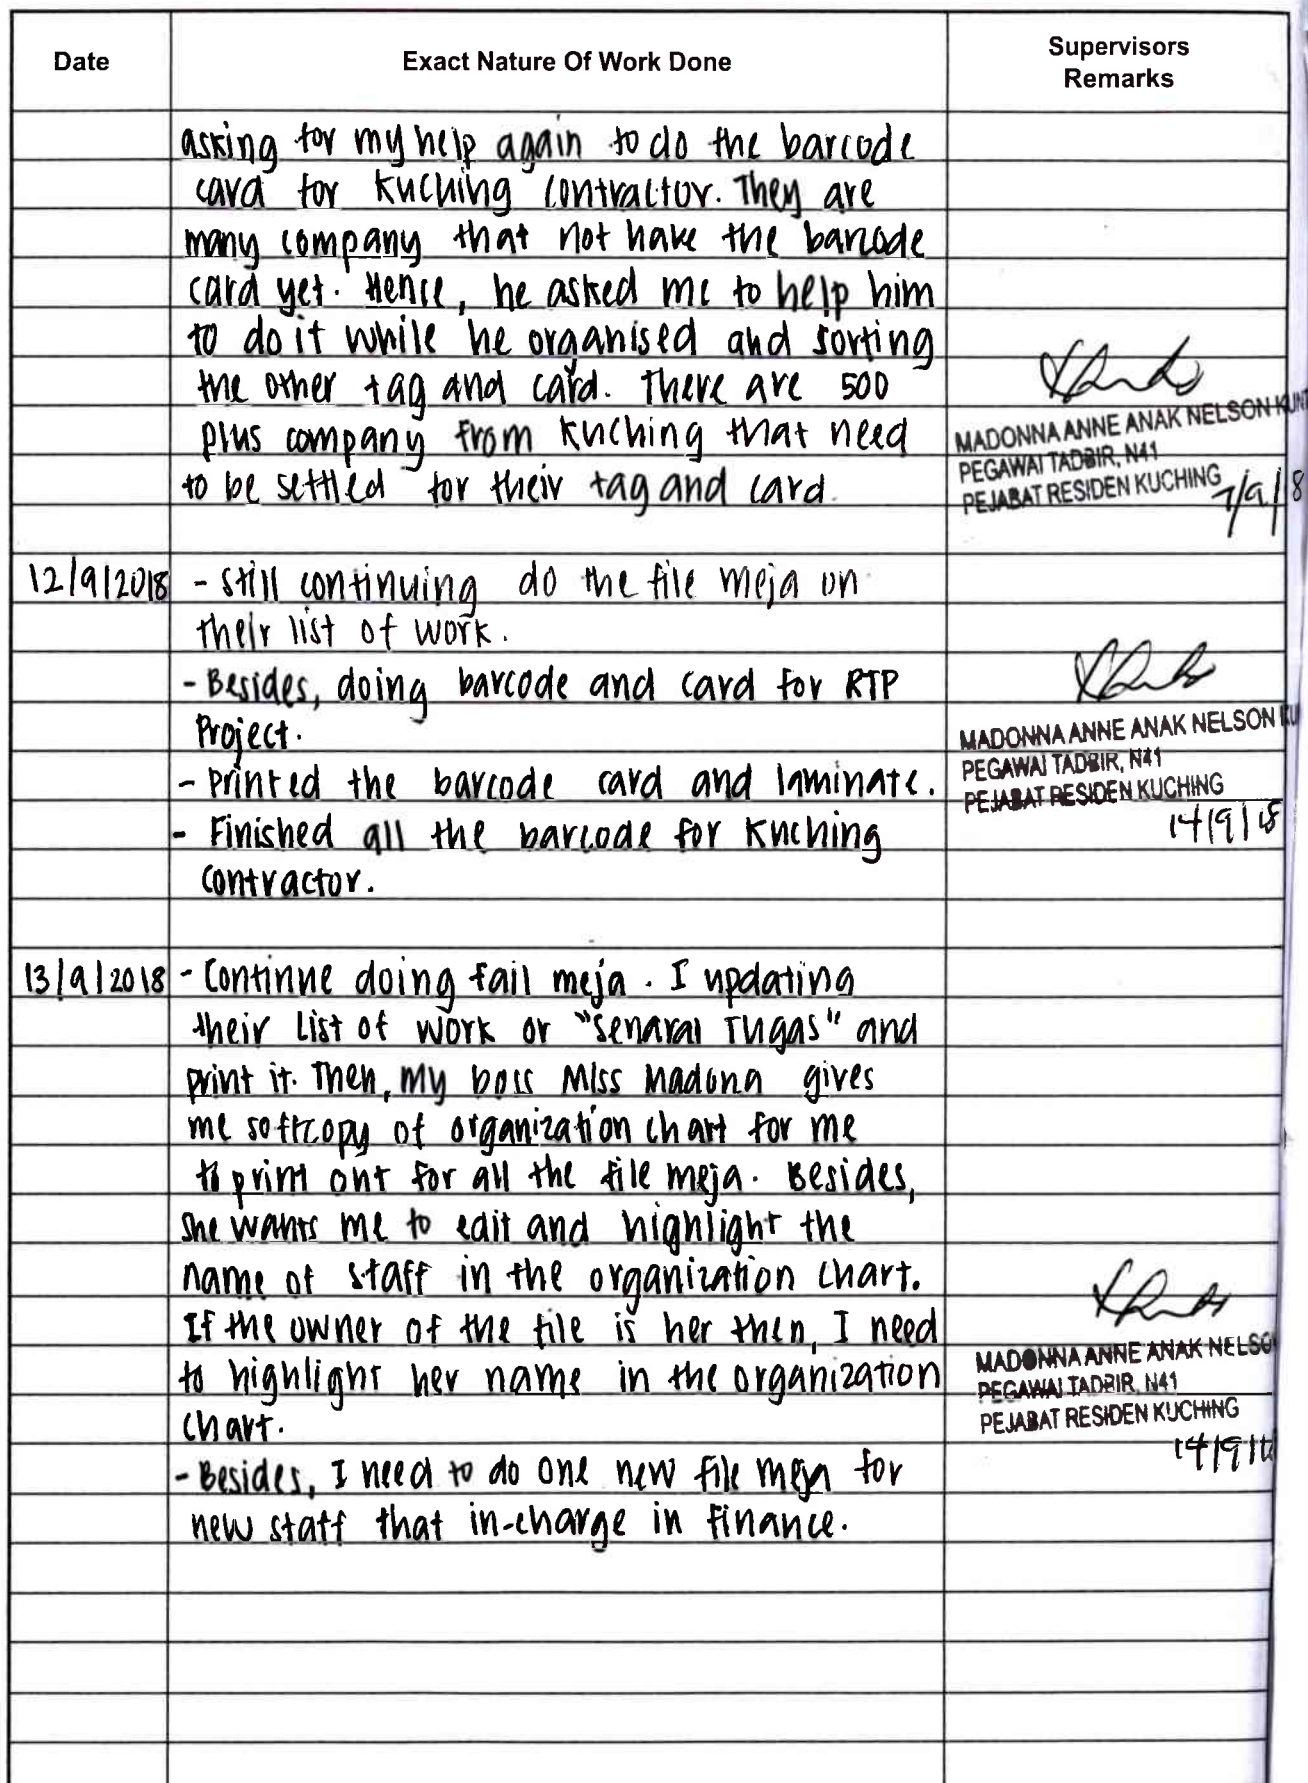 Date
Exact Nature Of Work Done
Supervisors
Remarks
asking for my help again to do the barcode
card for Kuching contractor. They are
many company that not have the barcode
card yet. Hence, he asked me to help him
to do it while he organised and sorting
the other tag and card. There are 500
plus company from Kuching that need
to be settled for their tag and card.
MADONNA ANNE ANAK NELSON
PEGAWAI TADBIR, N41
PEJABAT RESIDEN KUCHING
7/9/18
12/9/2018
- Still continuing do the file meja on
their list of work.
- Besides, doing barcode and card for RTP
Project.
- Printed the barcode card and laminate.
- Finished all the barcode for Kuching
contractor.
MADONNA ANNE ANAK NELSON
PEGAWAI TADBIR, N41
PEJABAT RESIDEN KUCHING
14/9/18
13/9/2018
- Continue doing fail meja. I updating
their list of work or "Senarai Tugas" and
print it. Then, my boss Miss Madona gives
me softcopy of organization chart for me
to print out for all the file meja. Besides,
she wants me to edit and highlight the
name of staff in the organization chart.
If the owner of the file is her then, I need
to highlight her name in the organization
chart.
- Besides, I need to do one new file meja for
new staff that in-charge in finance.
MADONNA ANNE ANAK NELSO
PEGAWAI TADBIR, N41
PEJABAT RESIDEN KUCHING
14/9/1